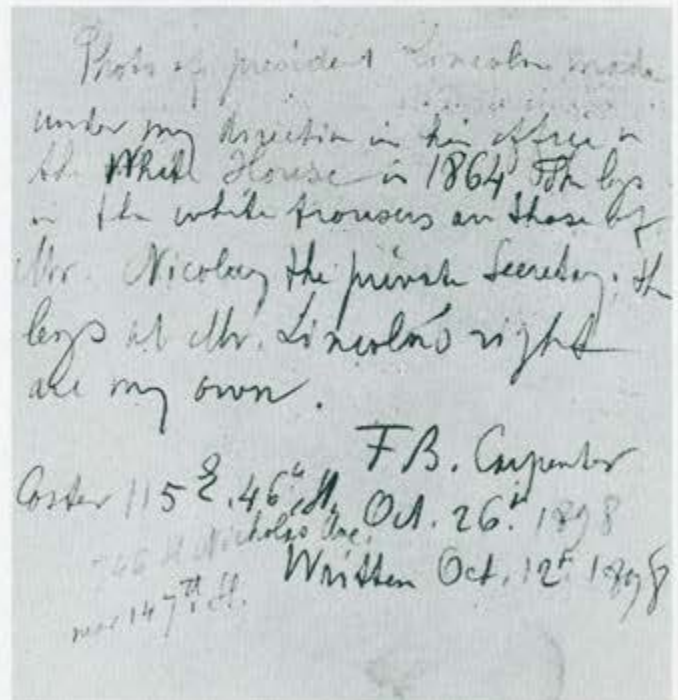 Photo of president Lincoln made
under my direction in his office in
the White House in 1864 The legs
in the white trousers are those of
Mr. Nicolay the private Secretary. the
legs at Mr. Lincoln's right
are my own.
F B. Carpenter
Coster 115 E. 46th St. Oct. 26th 1898
746 St Nicholas Ave.
Written Oct. 12th 1898
near 147th St.